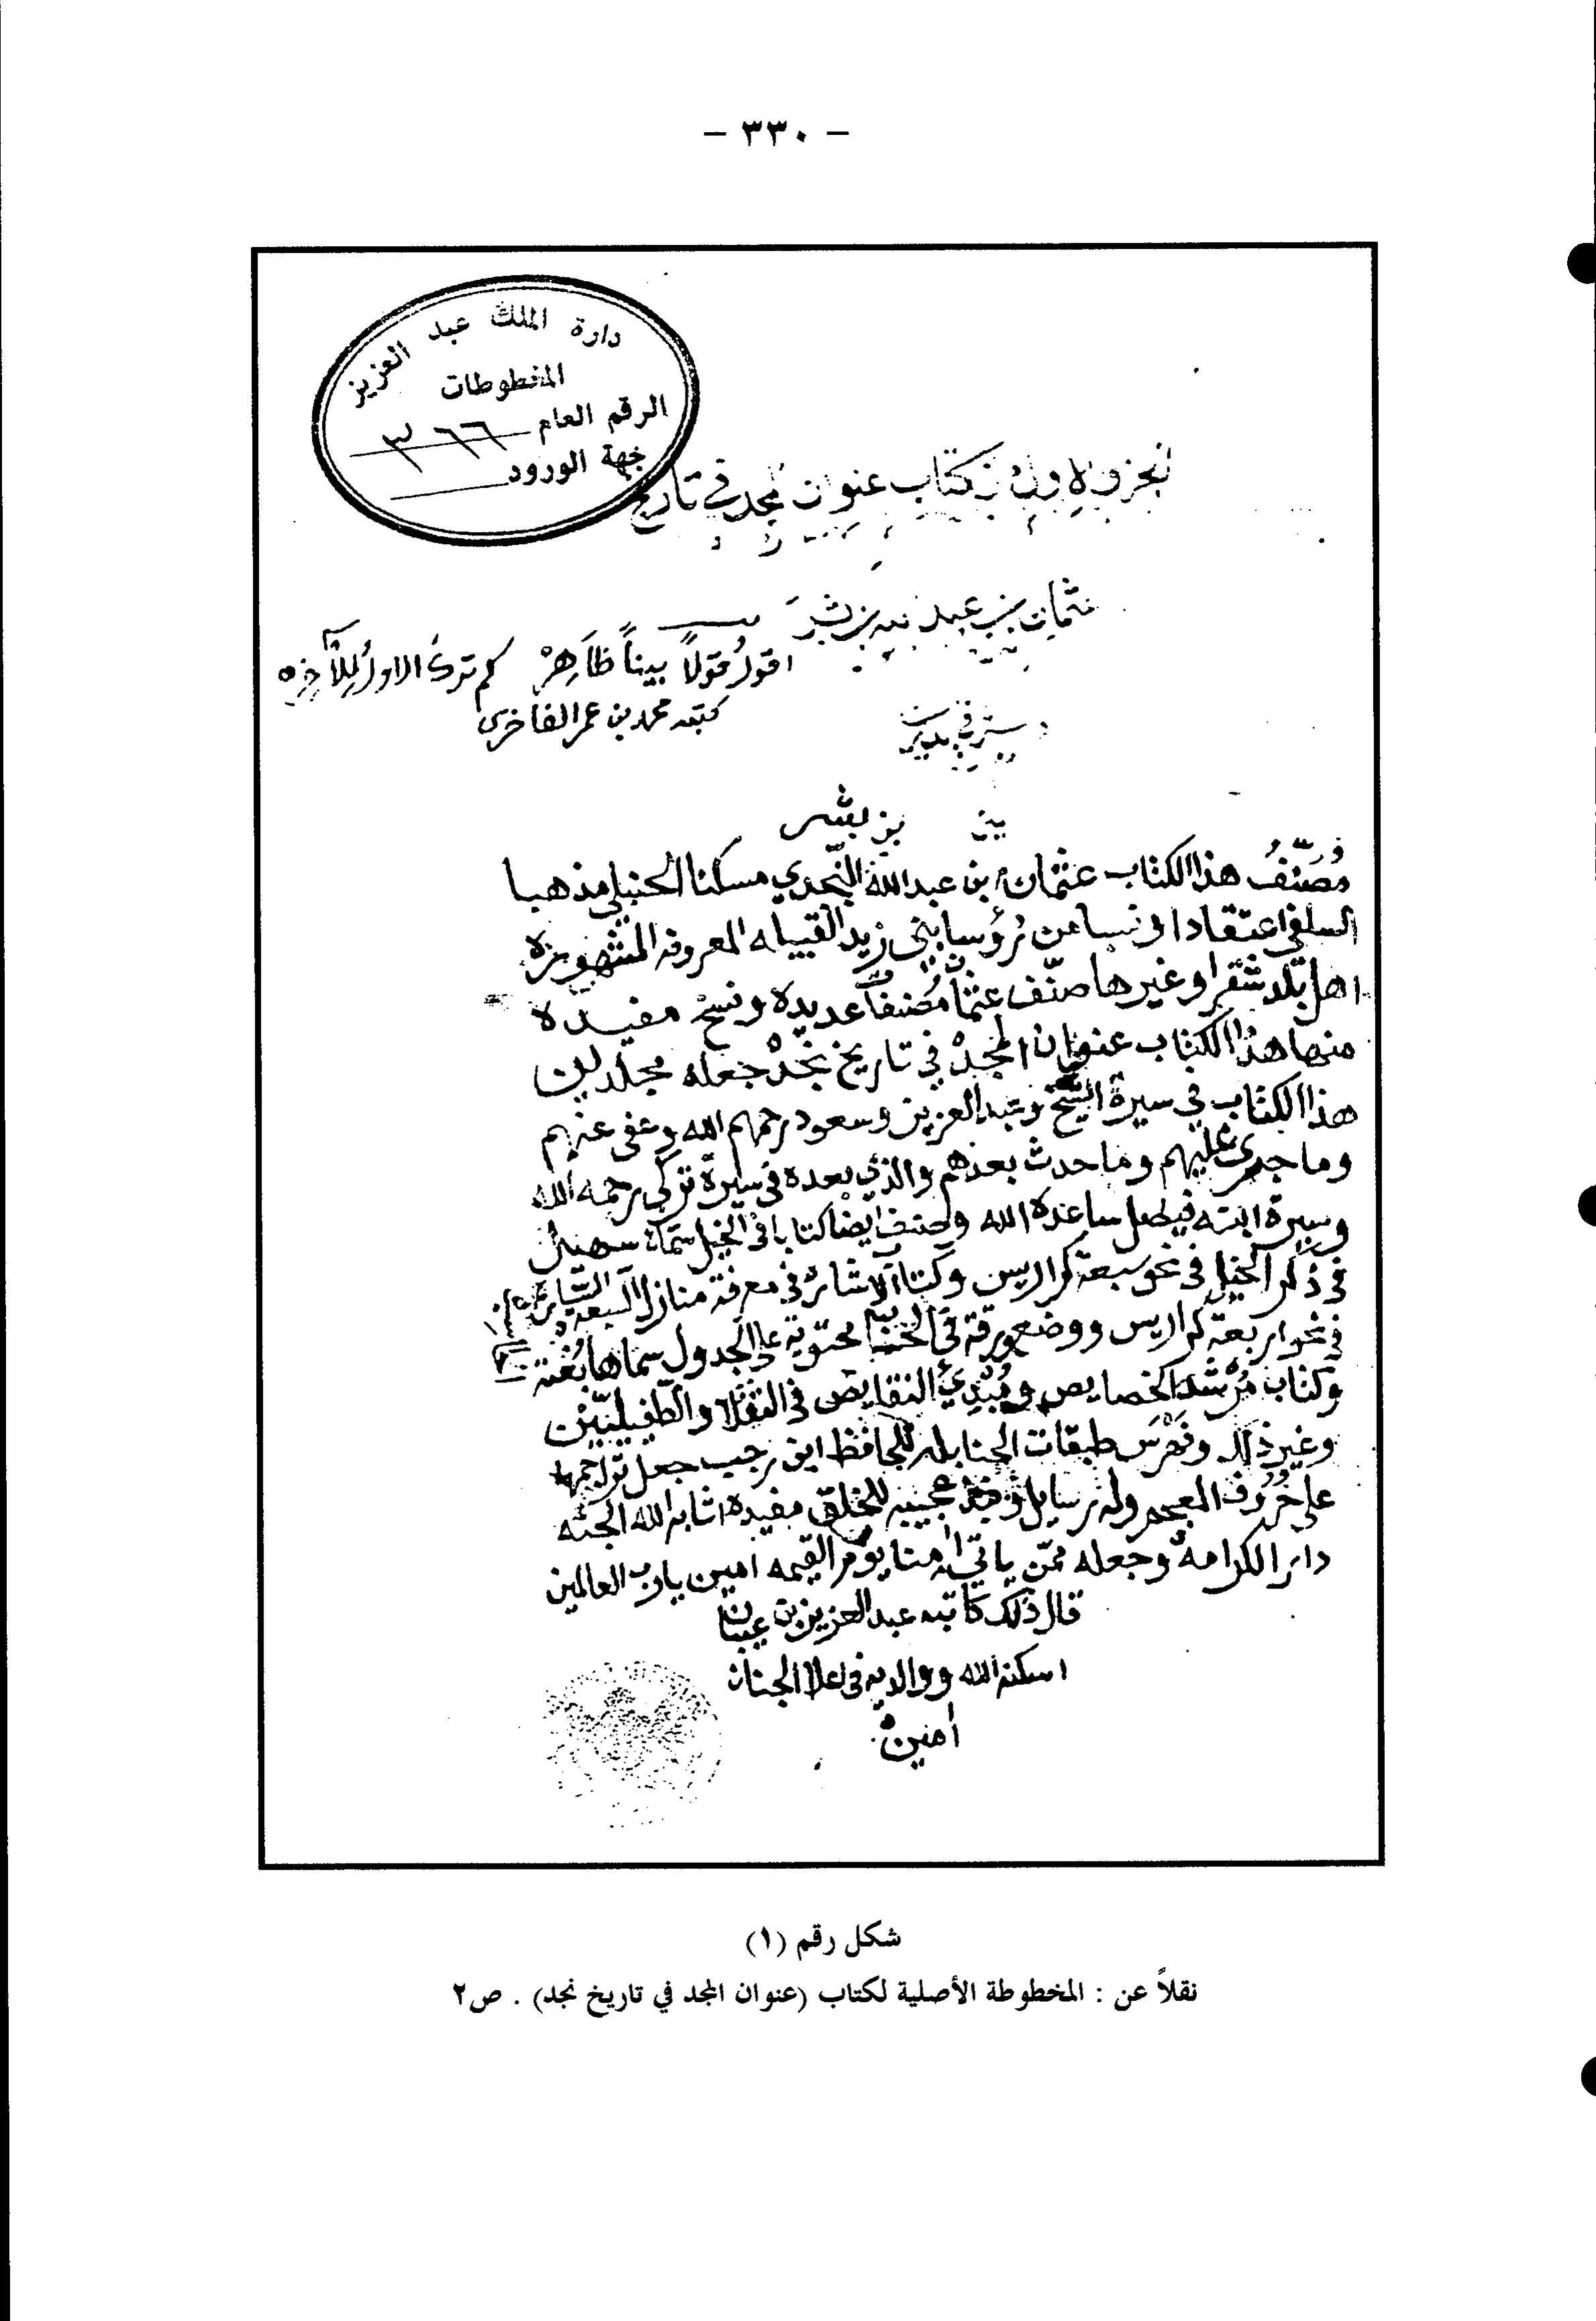 - ٣٣٠ -
دارة الملك عبد العزيز
المخطوطات
الرقم العام ٣٦٦
جهة الورود
كتاب عنوان المجد في تاريخ
عثمان بن عبد الله بن بشر
اقولُ قولاً بيناً ظاهرْ كم تركَ الاولُ للآخره
كتبه محمد بن عمر الفاخري
بن بشر
مُصَنِّفُ هذا الكتاب عثمان بن عبدالله النّجدي مسكنا الحنبلي مذهبا
السلفي اعتقادا ونسبا من رؤسا بني زيد القبيله المعروفه المشهوره
اهل بلد شقرا وغيرها صنّف عثمان مُصنفاً عديده ونسخ مفيده
منها هذا الكتاب عنوان المجدْ في تاريخ نجدْ جعله مجلدين
هذا الكتاب في سيرة الشيخ وعبدالعزيز وسعود رحمهم الله وعفى عنهم
وما جرى عليهم وما حدث بعدهم والذي بعده في سيرة تركي رحمه الله
وسيرة ابنه فيصل ساعده الله وصنف ايضا كتابا في الخيل سماه سهيل
في ذكر الخيل في نحو سبعة كراريس وكتاب الاشاره في معرفة منازل السبعه السّياره
في نحو اربعة كراريس ووضع ورقة في محتوية على الجدول سماها بُغية
وكتاب مُرْشد الخصايص ومُبْدِي النقايص في الثقلا والطفيليّين
وغير ذلك وفهرس طبقات الحنابله للحافظ ابن رجب جعل تراجمها
على حُرُوف المعجم وله رسايل عجيبه للخلق مفيده اثابه الله الجنّه
دار الكرامه وجعله ممّن ياتي امنا يوم القيمه امين يارب العالمين
قال ذلك كاتبه عبدالعزيز بن عيبان
اسكنه الله ووالديه في اعلا الجنان
امين
شكل رقم (١)
نقلاً عن : المخطوطة الأصلية لكتاب (عنوان المجد في تاريخ نجد) . ص٢